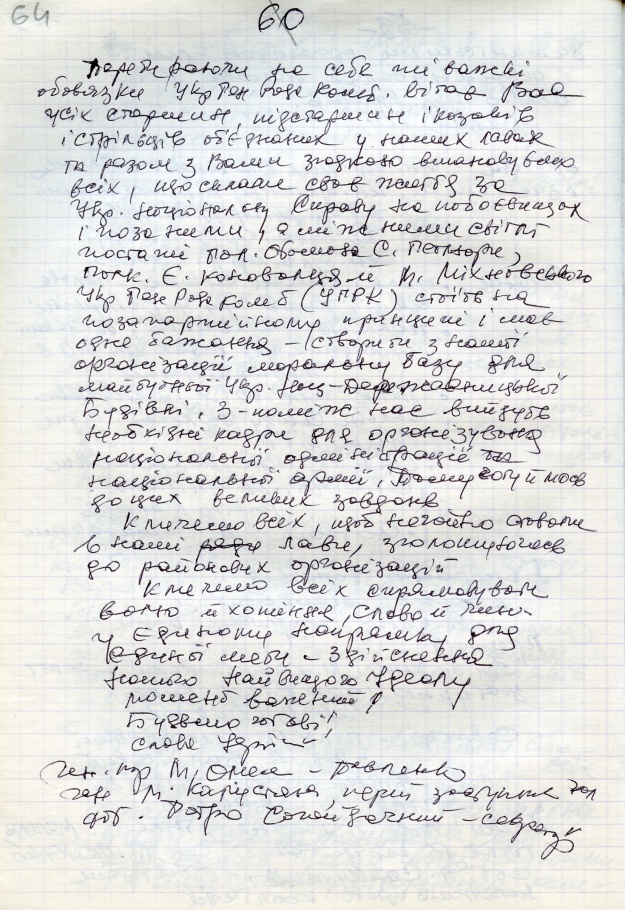 64
60
Перебираючи на себе ці важкі
обовязки Укр Пов Рада Комб. вітає Вас
усіх старшин, підстаршин і козаків
і стрільців обєднаних у наших лавах
та разом з Вами згадково вшановуємо
всіх, що склали своє життя за
Укр. Національну Справу на побоєвищах
і поза ними, а між ними світлі
постаті Гол. Отамана С. Петлюри,
Полк. Є. Коновальця й М. Міхновського
Укр Рада Комб (УПРК) стоїть на
позапартійному принципі і має
одне бажання – створити з нашої
організації моральну базу для
майбутньої Укр. Нац-Державницької
Будівлі. З-поміж нас вийдуть
необхідні кадри для організування
національної адміністрації та
національної армії. Тому готуймось
до цих великих завдань
Кличемо всіх, щоб негайно ставали
в наші лави, зголошуючись
до районових організацій
Кличемо всіх спрямовувати
волю й хотіння, слово й чин
у Єдиному напрямку для
Єдиної мети – Здійснення
нашого Найвищого Ідеалу
момент важкий!
Будьмо готові!
Слава Україні
ген. М. Омел – Павленко
ген М. Капустянський, перший заступник гол
от. Петро Сагайдачний – секретар